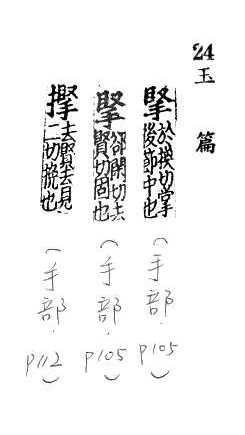 24
玉篇
掔
於換切掌
後節中也
(手部.P105)
掔
卻閑切去
賢切固也
(手部.P105)
去賢去見
二切挽也
(手部.P112)